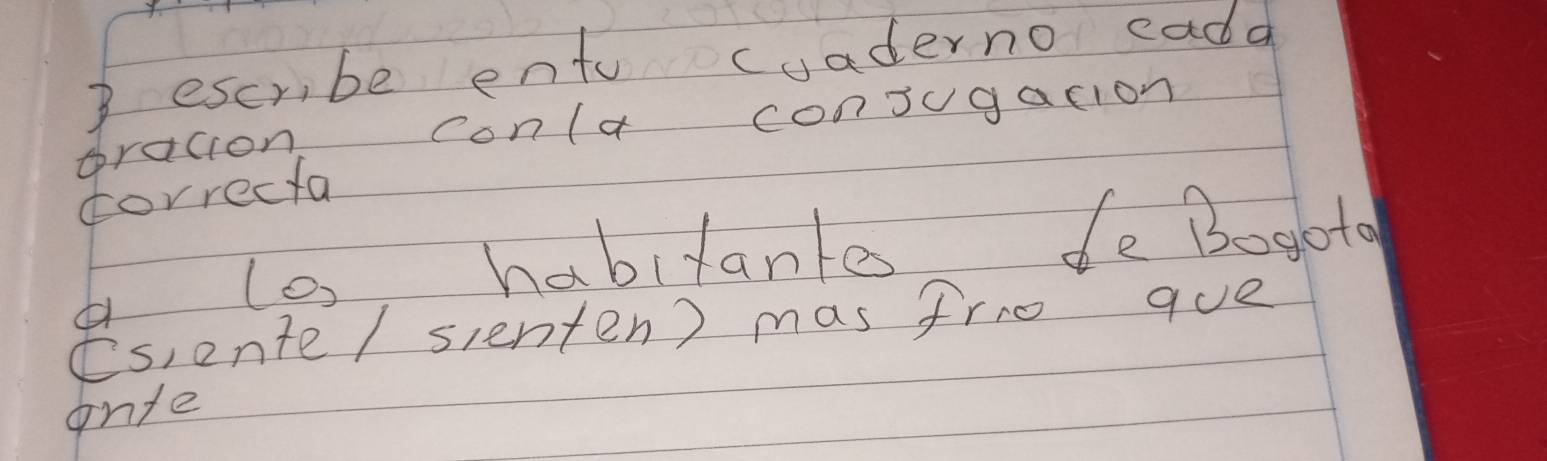 3 escribe entu cuaderno cada
oracion conla conjugacion
correcta
a los habitantes de Bogota
(siente / sienten) mas frio que
ante